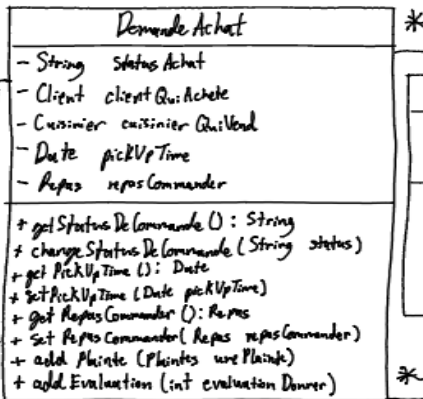 Demande Achat
*
- String status Achat
- Client client Qui Achete
- Cuisinier cuisinier Qui Vend
- Date pickUpTime
- Repas repas Commander
+ get Status De Commande () : String
+ change Status De Commande (String status)
+ get PickUpTime () : Date
+ set PickUpTime (Date pickUpTime)
+ get Repas Commander () : Repas
+ set Repas Commander (Repas repas Commander)
+ add Plainte (Plaintes une Plainte)
+ add Evaluation (int evaluation Donner)
*